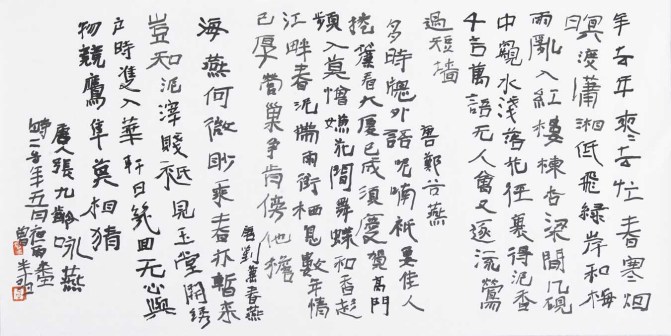 年去年來去忙春寒烟
暝渡瀟湘低飛綠岸和梅
雨亂入紅樓棟杏梁間几硯
中窺水淺落花徑裏得泥香
千言萬語无人會又逐流鶯
過短墻
唐鄭谷燕
多時窗外語呢喃祇要佳人
捲簾看大厦已成須慶賀高門
頻入莫憎嫌花間舞蝶和香趁
江畔春泥帶雨銜栖息數年情
已厚營巢爭肯傍他檐
唐劉兼春燕
海燕何微眇乘春亦暫來
豈知泥滓賤祇見玉堂開綉
户時雙入華軒日幾回无心與
物競鷹隼莫相猜
唐人張九齡咏燕
時二年五月夜雨